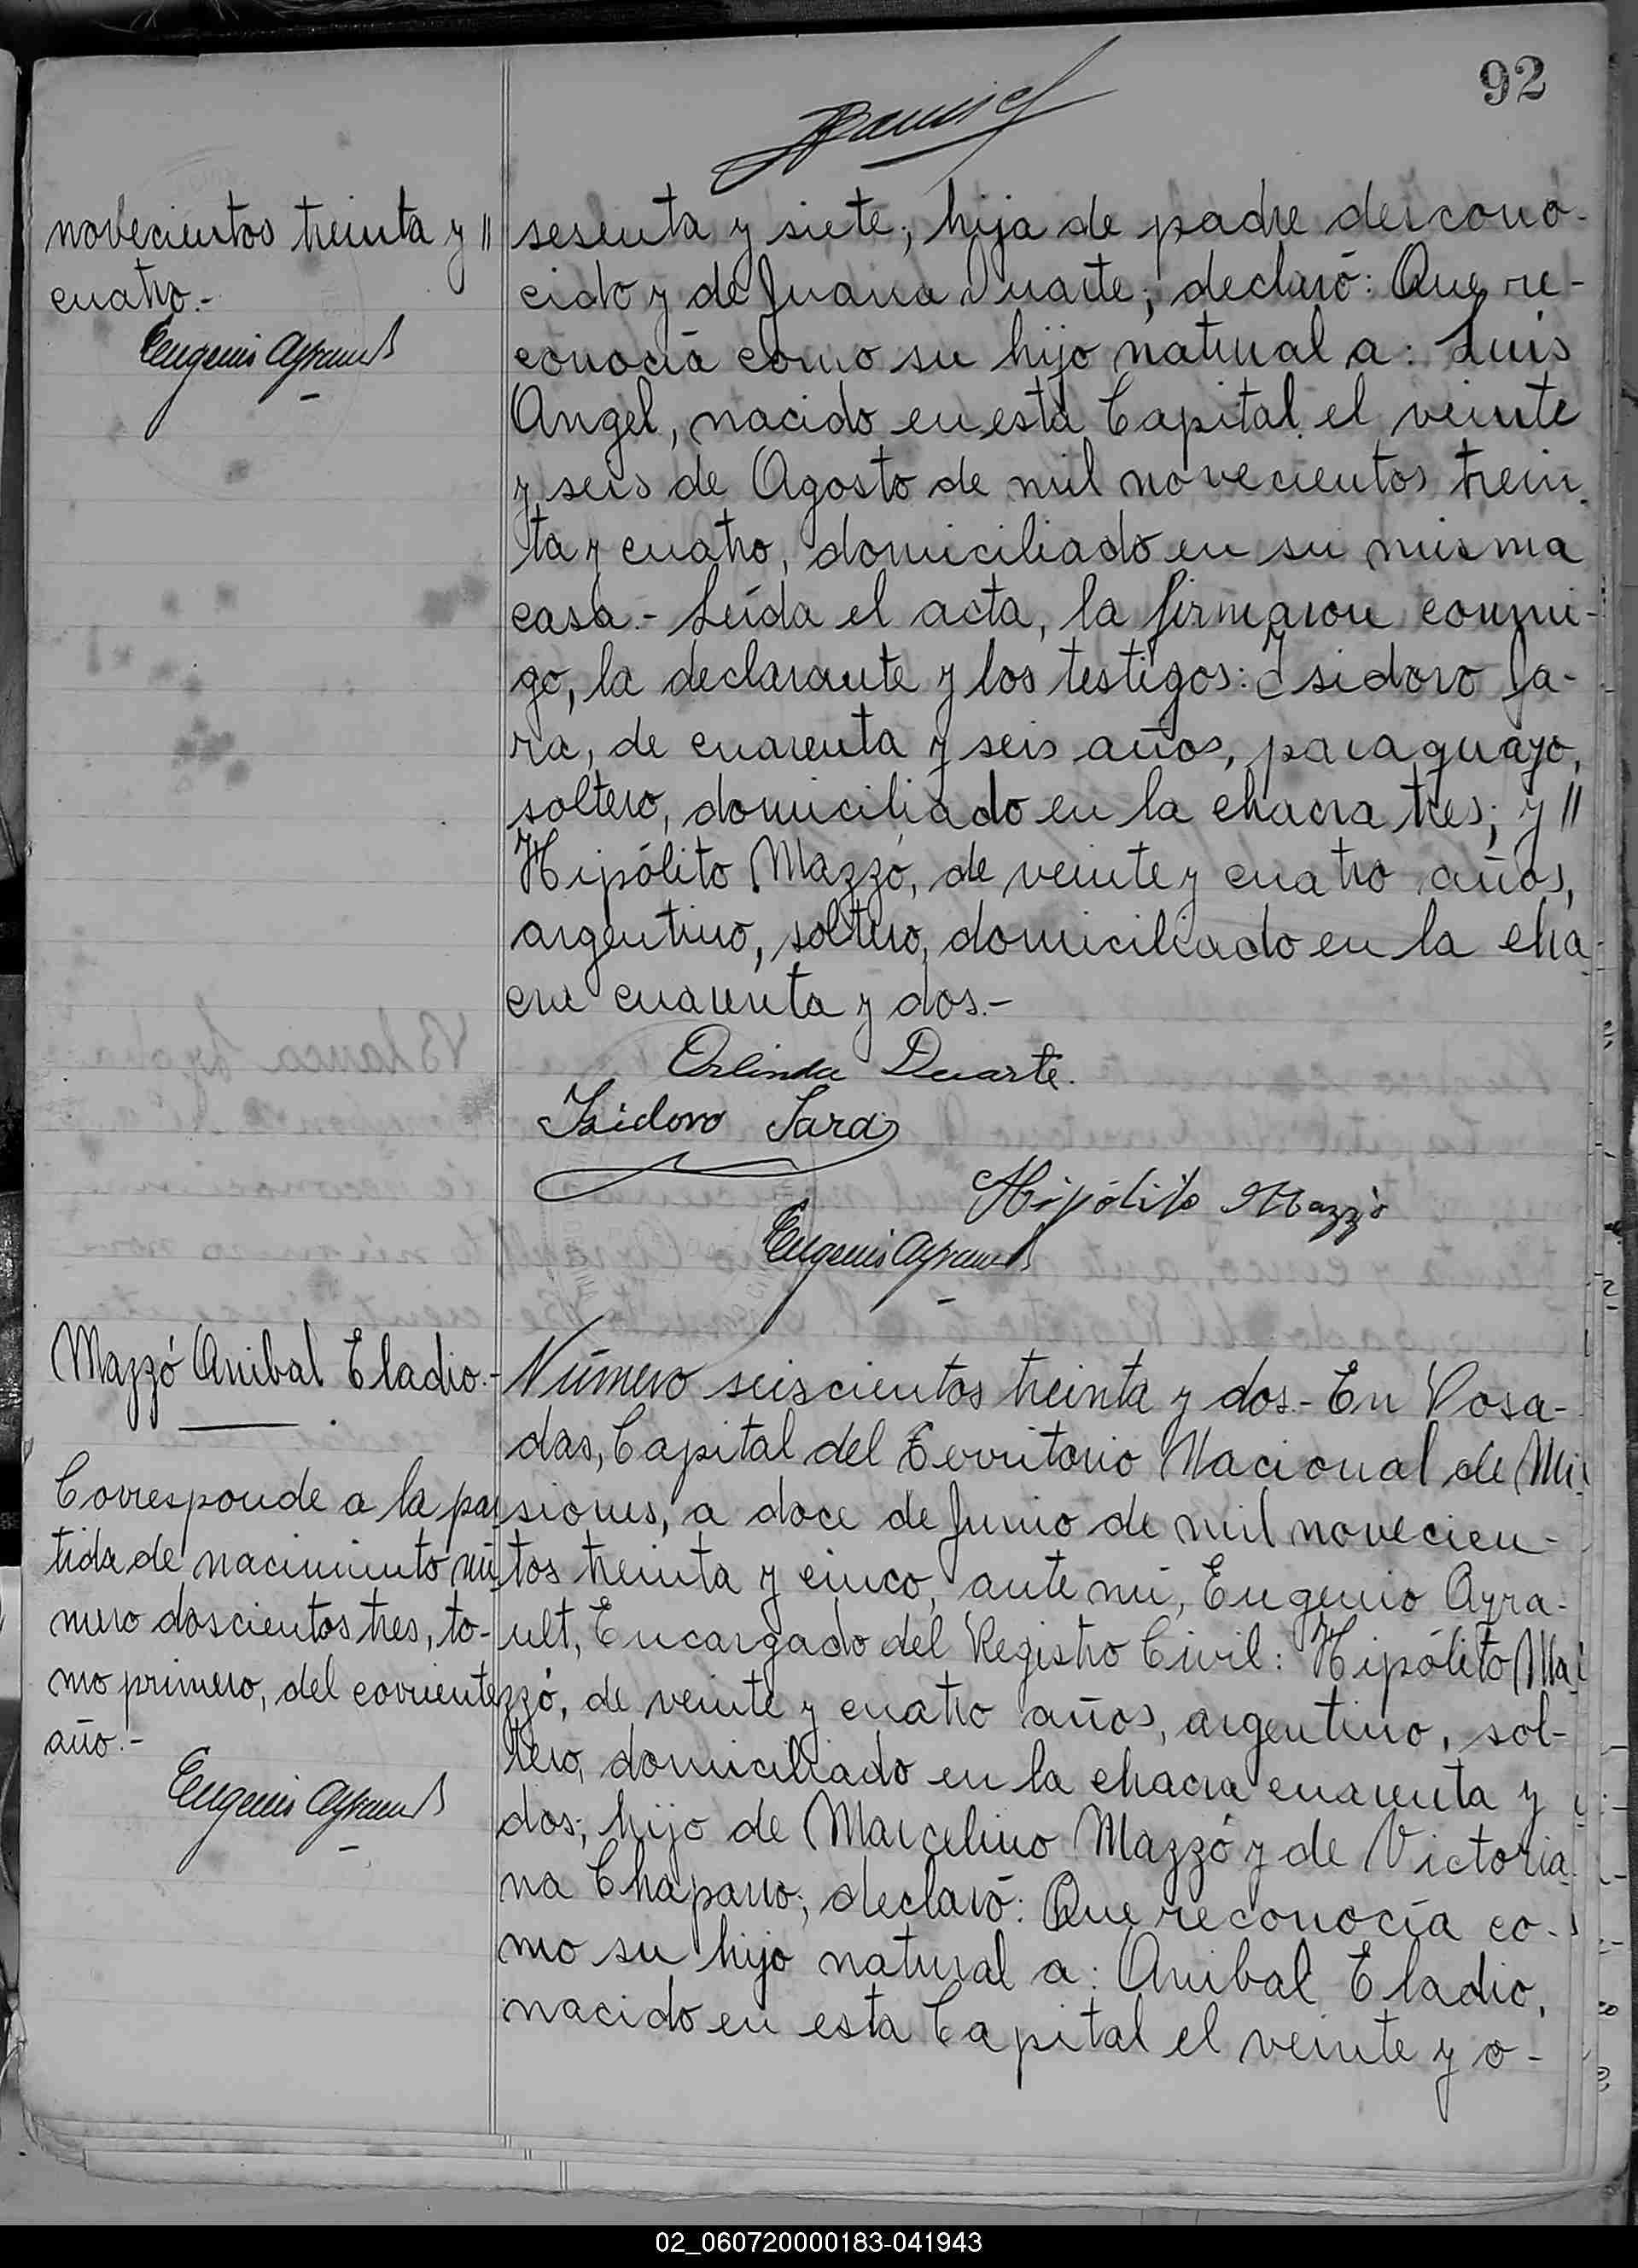 92
novecientos treinta y "
cuatro.-
Eugenio Ayrault
sesenta y siete; hija de padre descono-
cido y de Juana Duarte; declaró: Que re-
conocía como su hijo natural a: Luis
Angel, nacido en esta Capital el veinte
y seis de Agosto de mil novecientos trein-
ta y cuatro, domiciliado en su misma
casa.- Leída el acta, la firmaron conmi-
go, la declarante y los testigos: Isidoro Ja-
ra, de cuarenta y seis años, paraguayo,
soltero, domiciliado en la chacra tres; y "
Hipólito Mazzó, de veinte y cuatro años,
argentino, soltero, domiciliado en la cha-
cra cuarenta y dos.-
Orlinda Duarte.
Isidoro Jara
Hipólito Mazzó
Eugenio Ayrault
Mazzó Anibal Eladio.-
Corresponde a la par-
tida de nacimiento nú-
mero doscientos tres, to-
mo primero, del corriente
año.-
Eugenio Ayrault
Número seiscientos treinta y dos.- En Posa-
das, Capital del Territorio Nacional de Mi-
siones, a doce de Junio de mil novecien-
tos treinta y cinco, ante mí, Eugenio Ayra-
ult, Encargado del Registro Civil: Hipólito Ma-
zzó, de veinte y cuatro años, argentino, sol-
tero, domiciliado en la chacra cuarenta y
dos; hijo de Marcelino Mazzó y de Victoria-
na Chaparro; declaró: Que reconocía co-
mo su hijo natural a: Anibal Eladio,
nacido en esta Capital el veinte y o-
02_060720000183-041943